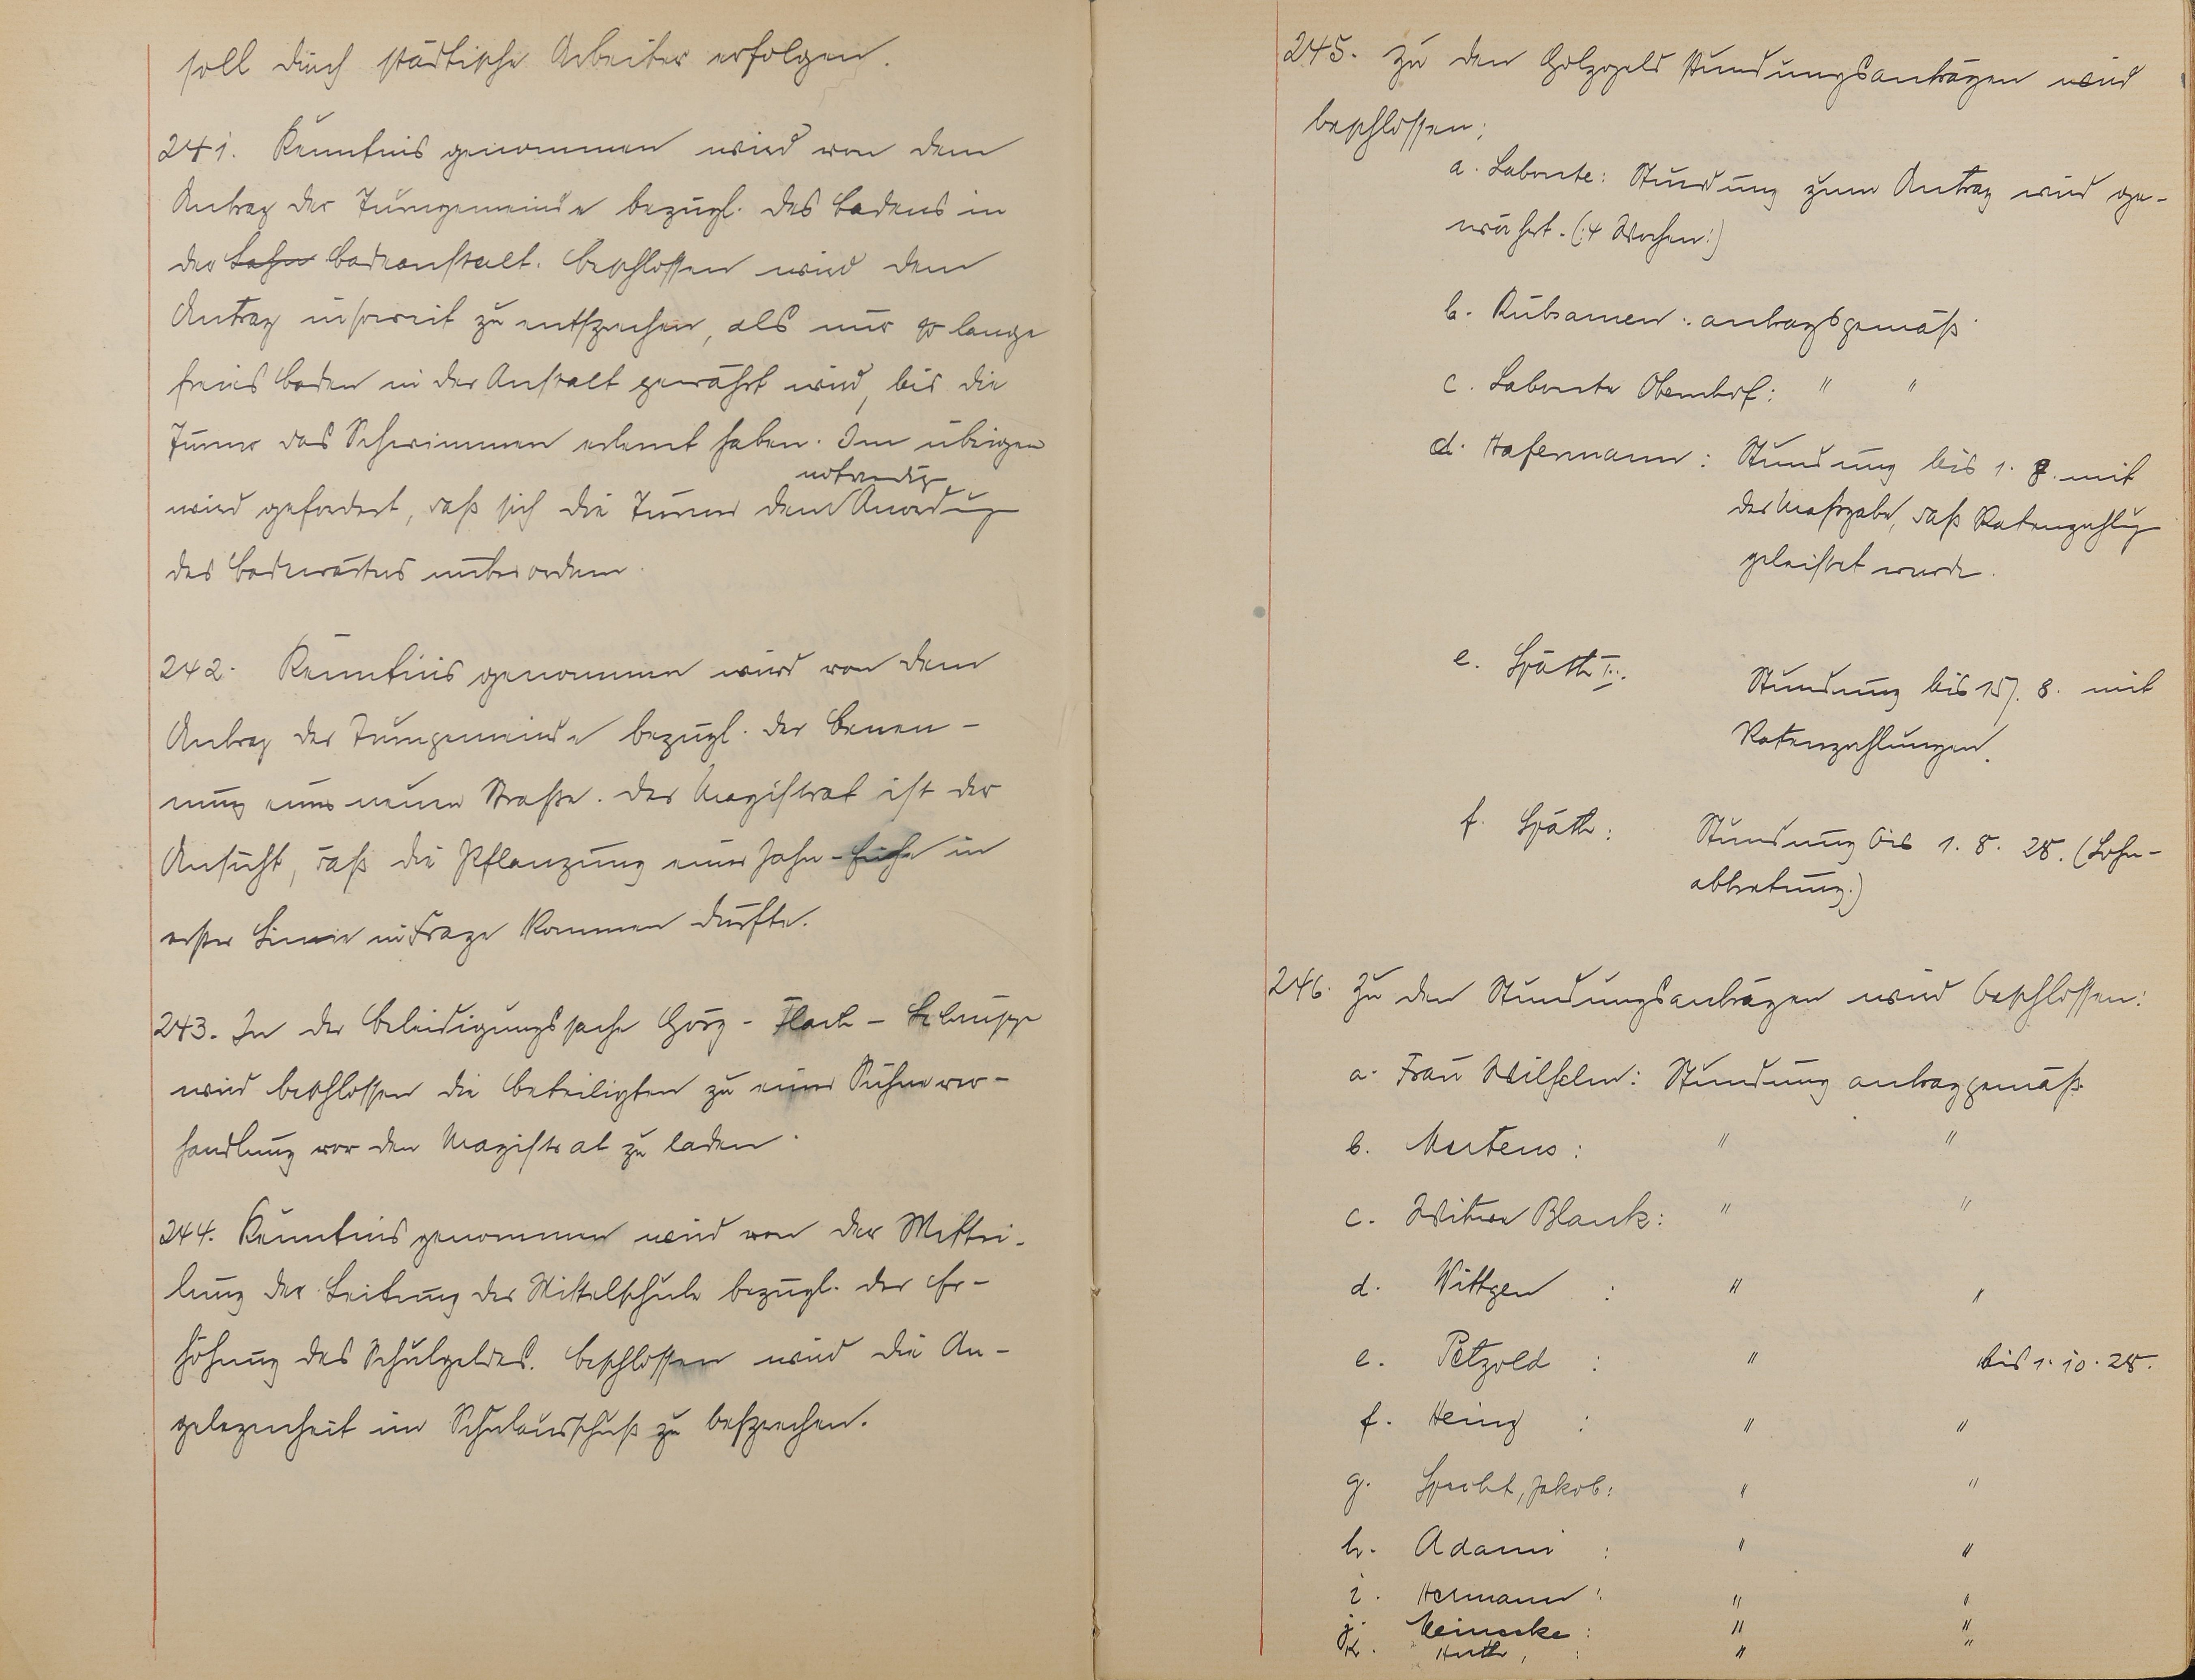 soll durch städtische Arbeiter erfolgen.
241. Kenntnis genommen wird von dem
Antrag der Turngemeinde bezügl. des Badens in
der Lahn Badeanstalt. Beschlossen wird dem
Antrag insoweit zu entsprechen, als nur so lange
freies Baden in der Anstalt gewährt wird, bis die
Turner das Schwimmen erlernt haben. Im übrigen
notwendig
wird gefordert, daß sich die Turner dem Anordug
des Badewärters unterordnen.
242. Kenntnis genommen wird von dem
Antrag der Turngemeinde bezügl. der Benen-
nung einer neuen Straße. Der Magistrat ist der
Ansicht, daß die Pflanzung einer Jahn-Eiche in
erster Linie in Frage kommen dürfte.
243. In der Beleidigungssache Görg - Flach -
wird beschlossen die Beteiligten zu einer Sühnever-
handlung vor den Magistrat zu laden.
244. Kenntnis genommen wird von der Mittei-
lung der Leitung der Mittelschule bezügl. der Er-
höhung des Schulgeldes. Beschlossen wird die An-
gelegenheit im Schulausschuß zu besprechen.
245. Zu den Holzgeld Stundungsanträgen wird
beschlossen:
a. Labonte: Stundung zum Antrag wird ge-
währt. (:4 Wochen:)
b. Rübsamen: antragsgemäß
c. Labonte Oberndorf: " "
d. Hafermann: Stundung bis 1. 8. mit
der Maßgabe, daß Ratenzahlg
geleistet wurde.
e. Späth III. Stundung bis 15. 8. mit
Ratenzahlungen.
f. Späth: Stundung bis 1. 8. 28. (Lohn-
abtretung.)
246. Zu den Stundungsanträgen wird beschlossen:
a. Frau Wilhelm: Stundung antraggemäß
b. Mertens: " "
c. Witwe Blank: " "
d. Wittgen : " "
e. Petzold : " bis 1. 10. 28.
f. Heinz : " "
g. Specht, Jakob: " "
h. Adami : " "
i. Hermann : " "
j. Meinecke : " "
k. Huth, : " "